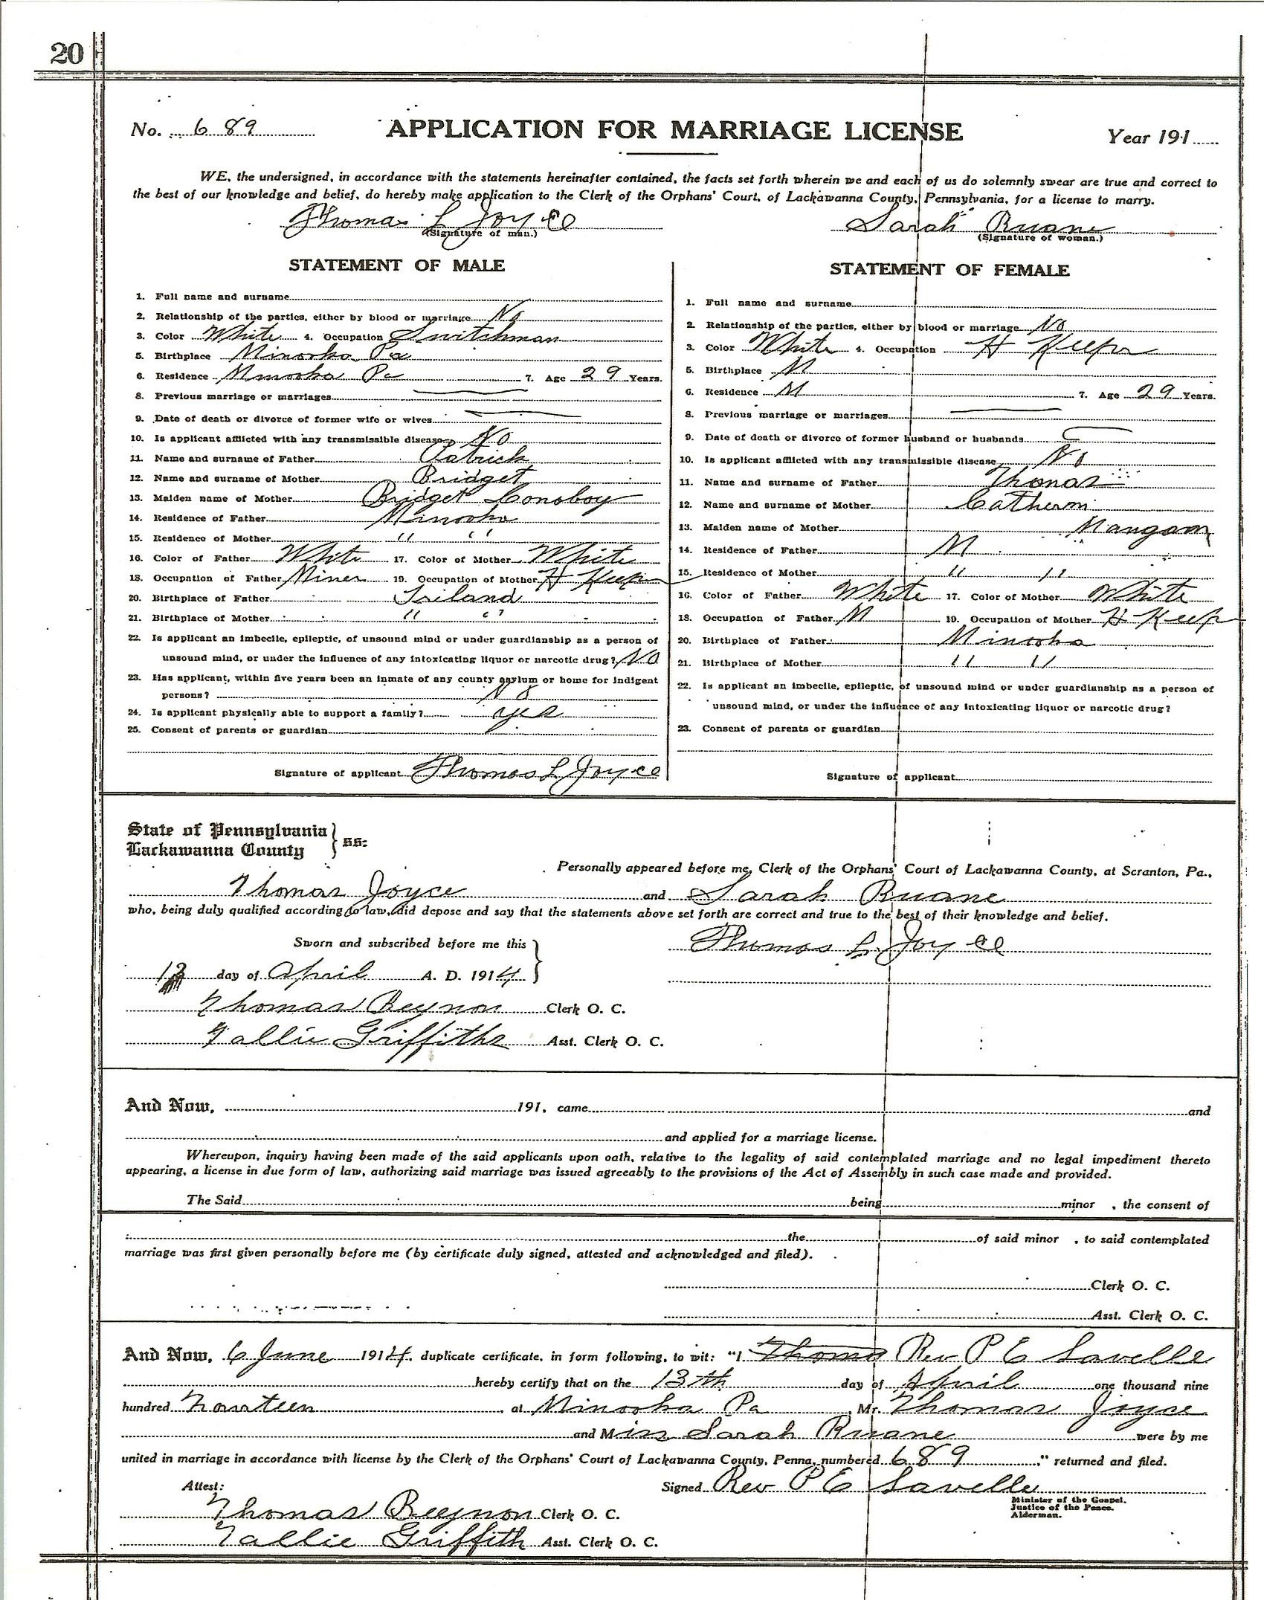 20
No. 689 APPLICATION FOR MARRIAGE LICENSE Year 191
WE, the undersigned, in accordance with the statements hereinafter contained, the facts set forth wherein we and each of us do solemnly swear are true and correct to
the best of our knowledge and belief, do hereby make application to the Clerk of the Orphans' Court, of Lackawanna County, Pennsylvania, for a license to marry.
Thomas L Joyce Sarah Ruane
(Signature of man.) (Signature of woman.)
STATEMENT OF MALE
1. Full name and surname
2. Relationship of the parties, either by blood or marriage No
3. Color White 4. Occupation Switchman
5. Birthplace Minooka Pa
6. Residence Minooka Pa 7. Age 29 Years.
8. Previous marriage or marriages
9. Date of death or divorce of former wife or wives
10. Is applicant afflicted with any transmissible disease No
11. Name and surname of Father Patrick
12. Name and surname of Mother Bridget
13. Maiden name of Mother Bridget Conoboy
14. Residence of Father Minooka
15. Residence of Mother " "
16. Color of Father White 17. Color of Mother White
18. Occupation of Father Miner 19. Occupation of Mother H Keeper
20. Birthplace of Father Ireland
21. Birthplace of Mother " "
22. Is applicant an imbecile, epileptic, of unsound mind or under guardianship as a person of
unsound mind, or under the influence of any intoxicating liquor or narcotic drug? No
23. Has applicant, within five years been an inmate of any county asylum or home for indigent
persons? No
24. Is applicant physically able to support a family? yes
25. Consent of parents or guardian
Signature of applicant Thomas L Joyce
STATEMENT OF FEMALE
1. Full name and surname
2. Relationship of the parties, either by blood or marriage No
3. Color White 4. Occupation H Keeper
5. Birthplace M
6. Residence M 7. Age 29 Years.
8. Previous marriage or marriages
9. Date of death or divorce of former husband or husbands
10. Is applicant afflicted with any transmissible disease No
11. Name and surname of Father Thomas
12. Name and surname of Mother Cathern
13. Maiden name of Mother Mangan
14. Residence of Father M
15. Residence of Mother " "
16. Color of Father White 17. Color of Mother White
18. Occupation of Father M 19. Occupation of Mother H Keep
20. Birthplace of Father Minooka
21. Birthplace of Mother " "
22. Is applicant an imbecile, epileptic, of unsound mind or under guardianship as a person of
unsound mind, or under the influence of any intoxicating liquor or narcotic drug?
23. Consent of parents or guardian
Signature of applicant
State of Pennsylvania
Lackawanna County } ss:
Personally appeared before me, Clerk of the Orphans' Court of Lackawanna County, at Scranton, Pa.,
Thomas Joyce and Sarah Ruane
who, being duly qualified according to law, did depose and say that the statements above set forth are correct and true to the best of their knowledge and belief.
Sworn and subscribed before me this Thomas L Joyce
13 day of April A. D. 1914
Thomas Beynon Clerk O. C.
Tallie Griffiths Asst. Clerk O. C.
And Now, 191, came and
and applied for a marriage license.
Whereupon, inquiry having been made of the said applicants upon oath, relative to the legality of said contemplated marriage and no legal impediment thereto
appearing, a license in due form of law, authorizing said marriage was issued agreeably to the provisions of the Act of Assembly in such case made and provided.
The Said being minor , the consent of
the of said minor , to said contemplated
marriage was first given personally before me (by certificate duly signed, attested and acknowledged and filed).
Clerk O. C.
Asst. Clerk O. C.
And Now, 6 June 1914. duplicate certificate, in form following, to wit: "I Rev P E Lavelle
hereby certify that on the 13th day of April one thousand nine
hundred fourteen at Minooka Pa Mr. Thomas Joyce
and Miss Sarah Ruane were by me
united in marriage in accordance with license by the Clerk of the Orphans' Court of Lackawanna County, Penna, numbered 689 ," returned and filed.
Attest: Signed Rev P E Lavelle
Minister of the Gospel.
Justice of the Peace.
Alderman.
Thomas Beynon Clerk O. C.
Tallie Griffith Asst. Clerk O. C.